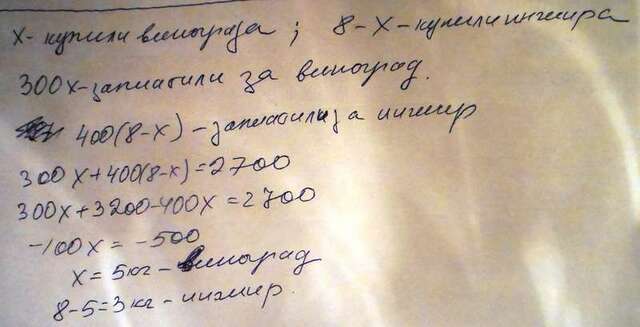 х- купили винограда ; 8-х-купили инжира
300х-заплатили за виноград.
400(8-х) - заплатили за инжир
300х+400(8-х)=2700
300х+3200-400х=2700
-100х = -500
х=5кг-виноград
8-5=3кг-инжир.